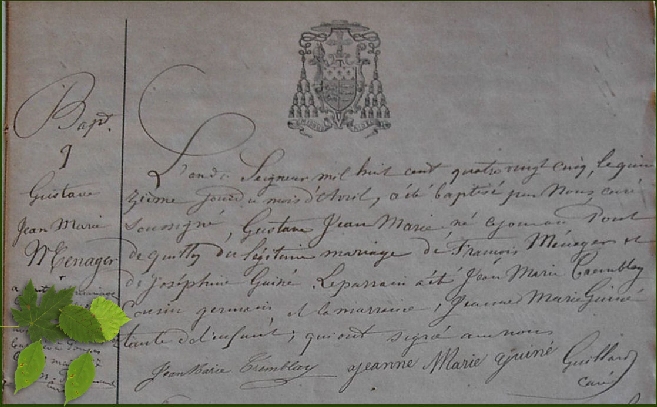 Bapt.
9
Gustave
Jean Marie
Ménager
L'an du Seigneur mil huit cent quatre vingt cinq, le quin
zième jour du mois d'Avril, a été baptisé par Nous curé
soussigné, Gustave Jean Marie né ce jour au Pont
de quilly du légitime mariage de François Ménager et
de Joséphine Guiné. Le parrain a été Jean Marie Tremblay
Cousin germain et la marraine, Jeanne Marie Guiné
tante de l'enfant; qui ont signé avec nous
Jean Marie Tremblay Jeanne Marie Guiné Guillard
curé